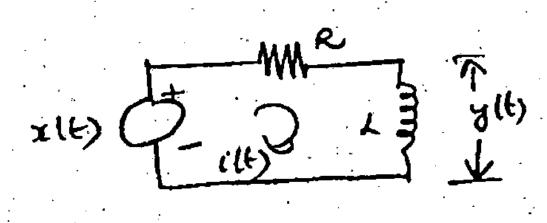 R
+
x(t)
-
i(t)
L
y(t)